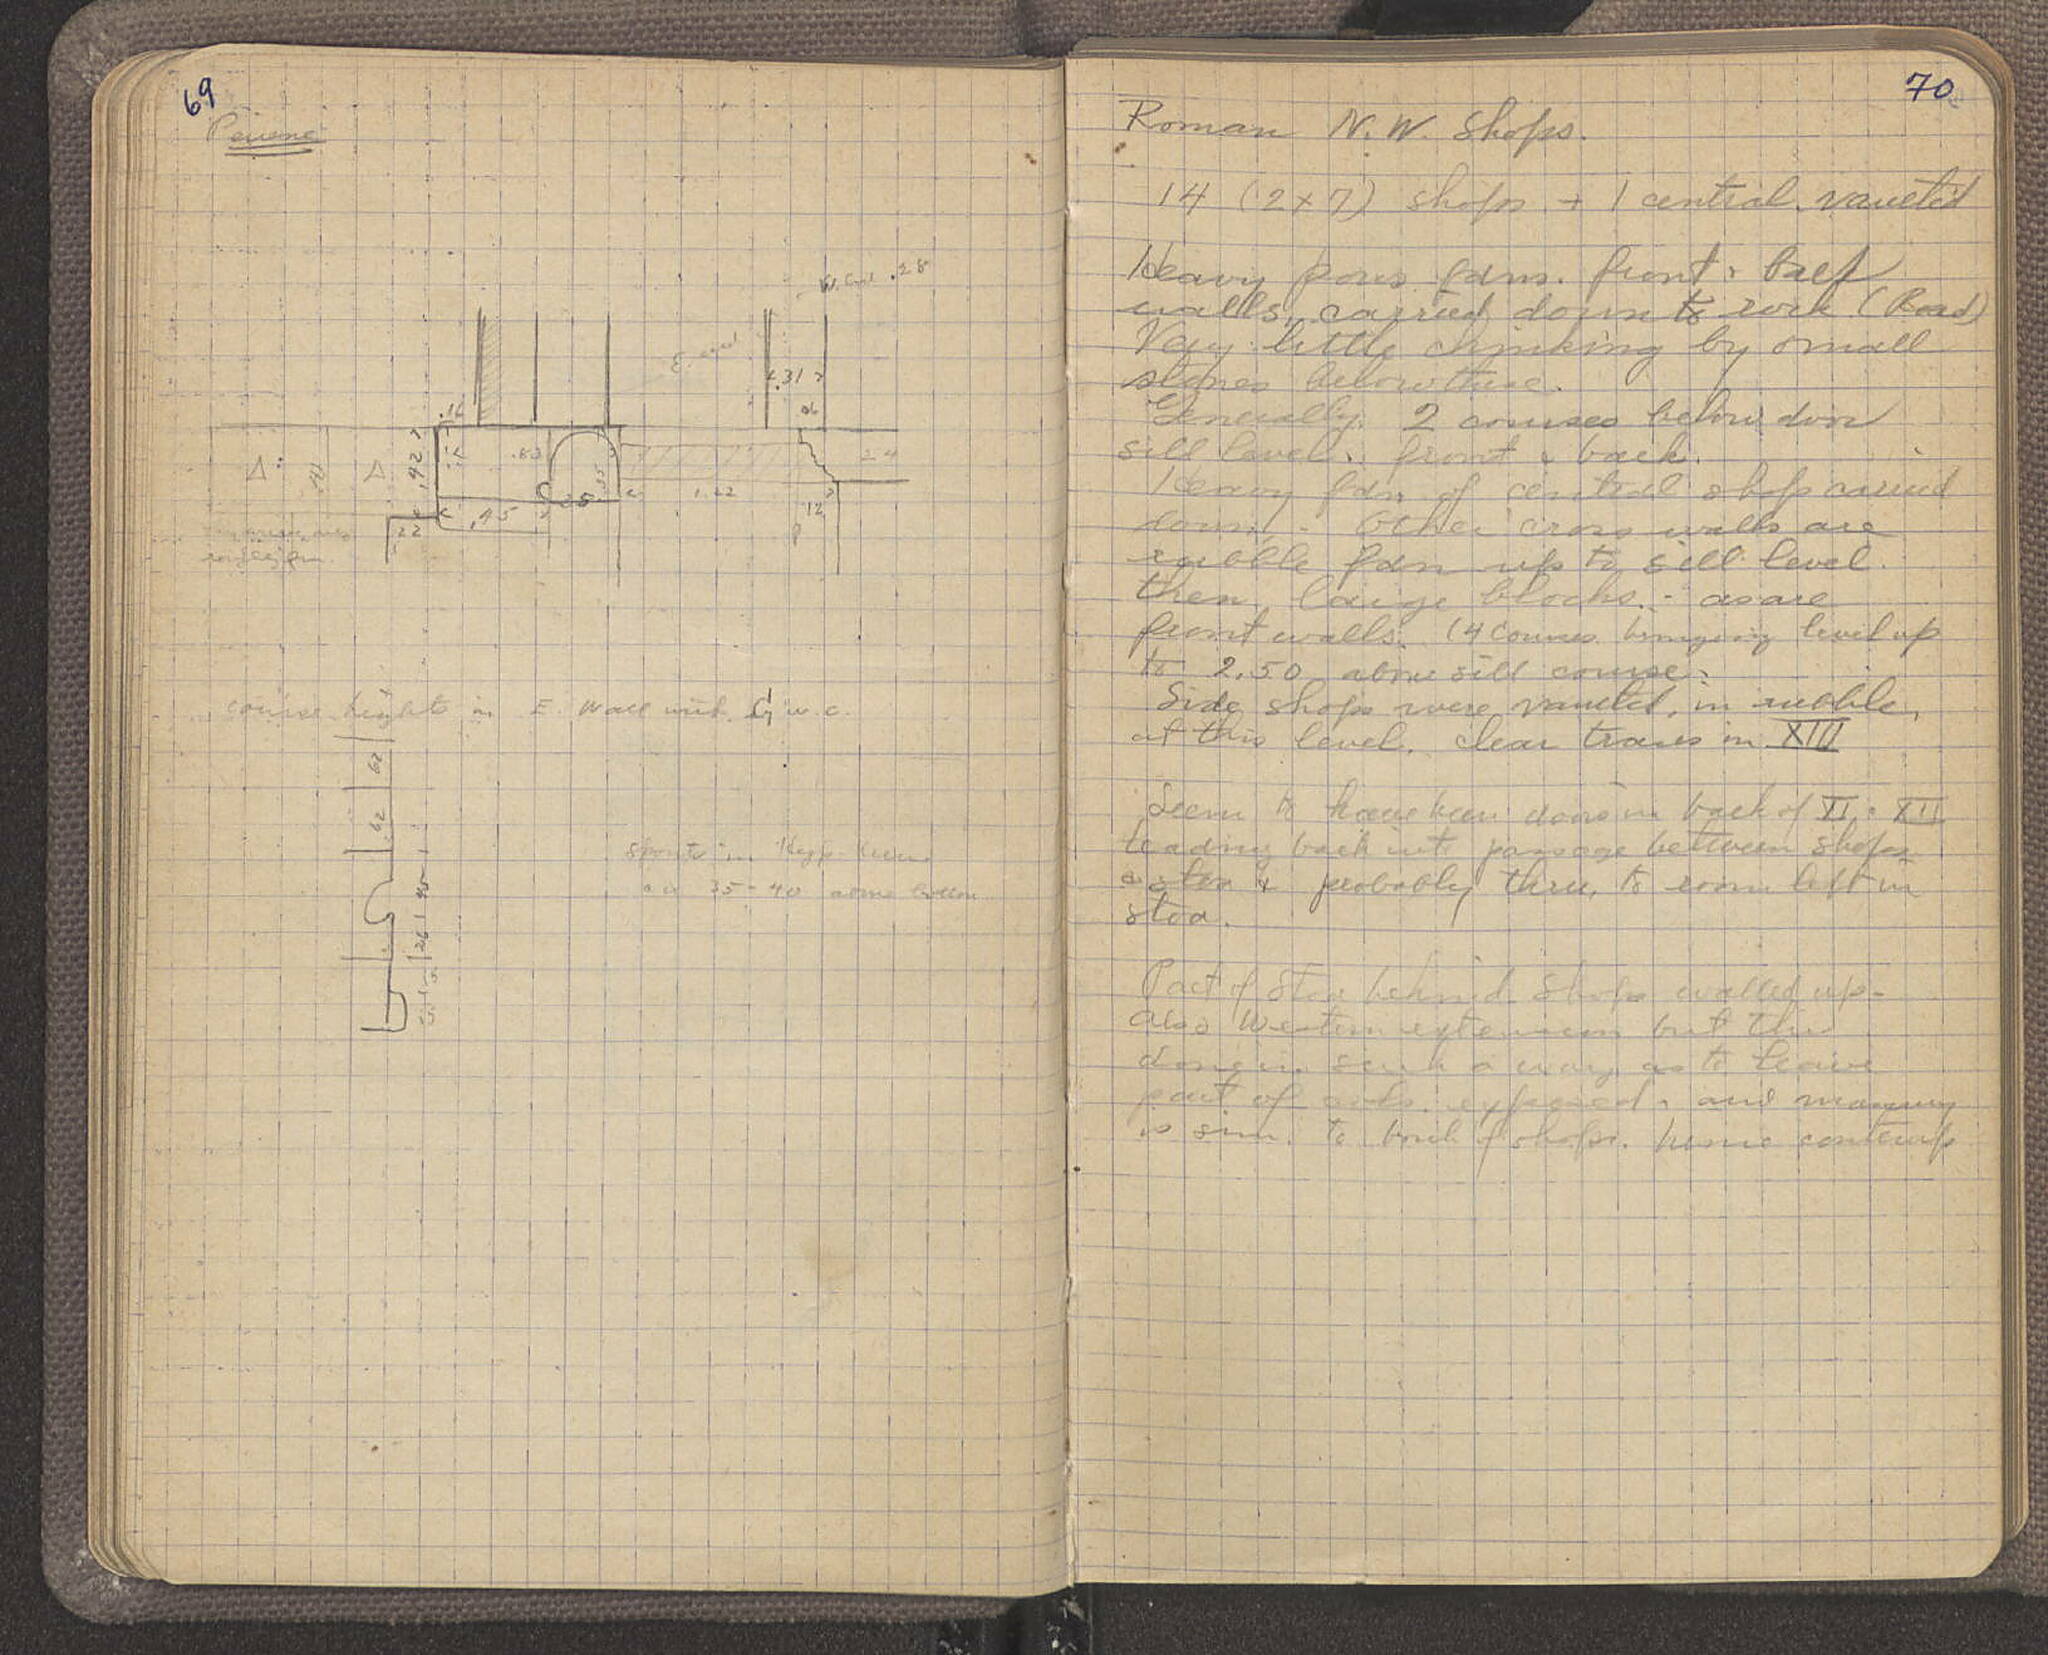 69
Peirene
W. End .28
E. end
.31
.16
06
.92
.83
24
.55
1.22
.45
28
12
22
course heights in E. Wall
62
62
45
26
spouts in Hyp.
35-40 above bottom
70
Roman N.W. Shops.
14 (2x7) shops + 1 central vaulted
Heavy poros fdns. front & back
walls, carried down to rock (Road)
Very little chinking by small
stones below these.
Generally 2 courses below door
sill level. front & back.
Heavy fdn of central shop carried
down. - Other cross walls are
rubble fdn up to sill level.
then large blocks. - as are
front walls. (4 courses bringing level up
to 2.50 above sill course.
Side shops were vaulted, in rubble,
at this level. clear traces in XIII
Seem to have been doors in back of XI & XII
leading back into passage between shops
& stoa & probably thru, to room left in
stoa.
Part of Stoa behind Shops walled up -
also Western extension but this
done in such a way as to leave
part of cols. exposed. and masonry
is sim. to back of shops. hence contemp